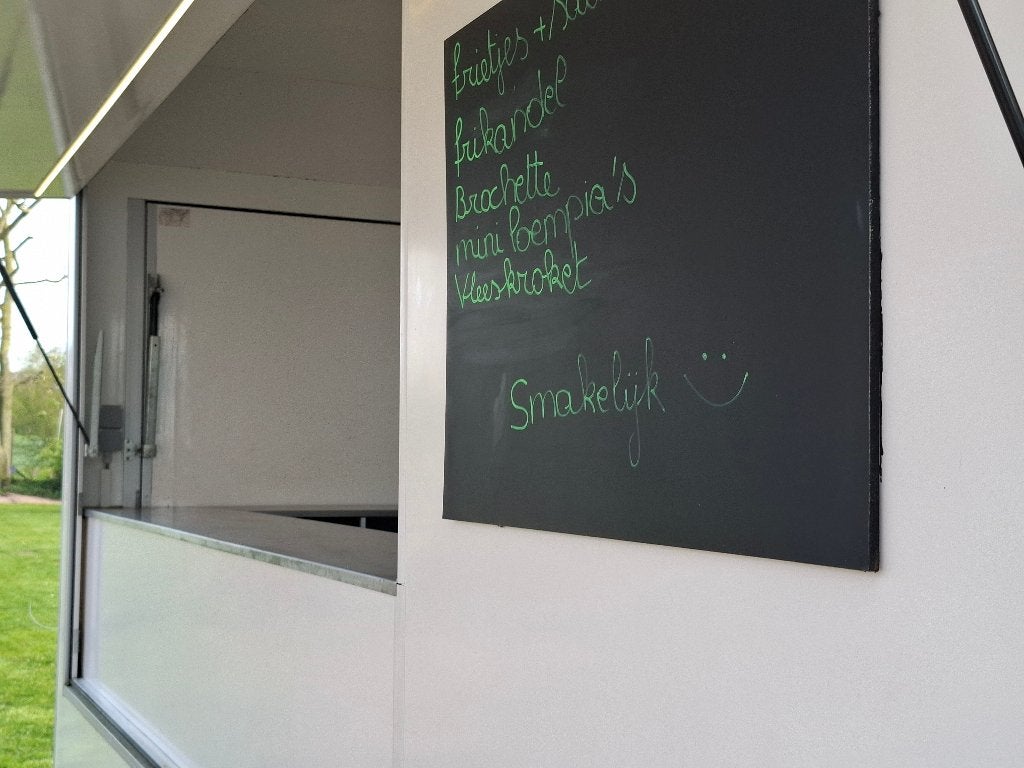 frietjes +
frikandel
Brochette
mini loempia's
Vleeskroket
Smakelijk